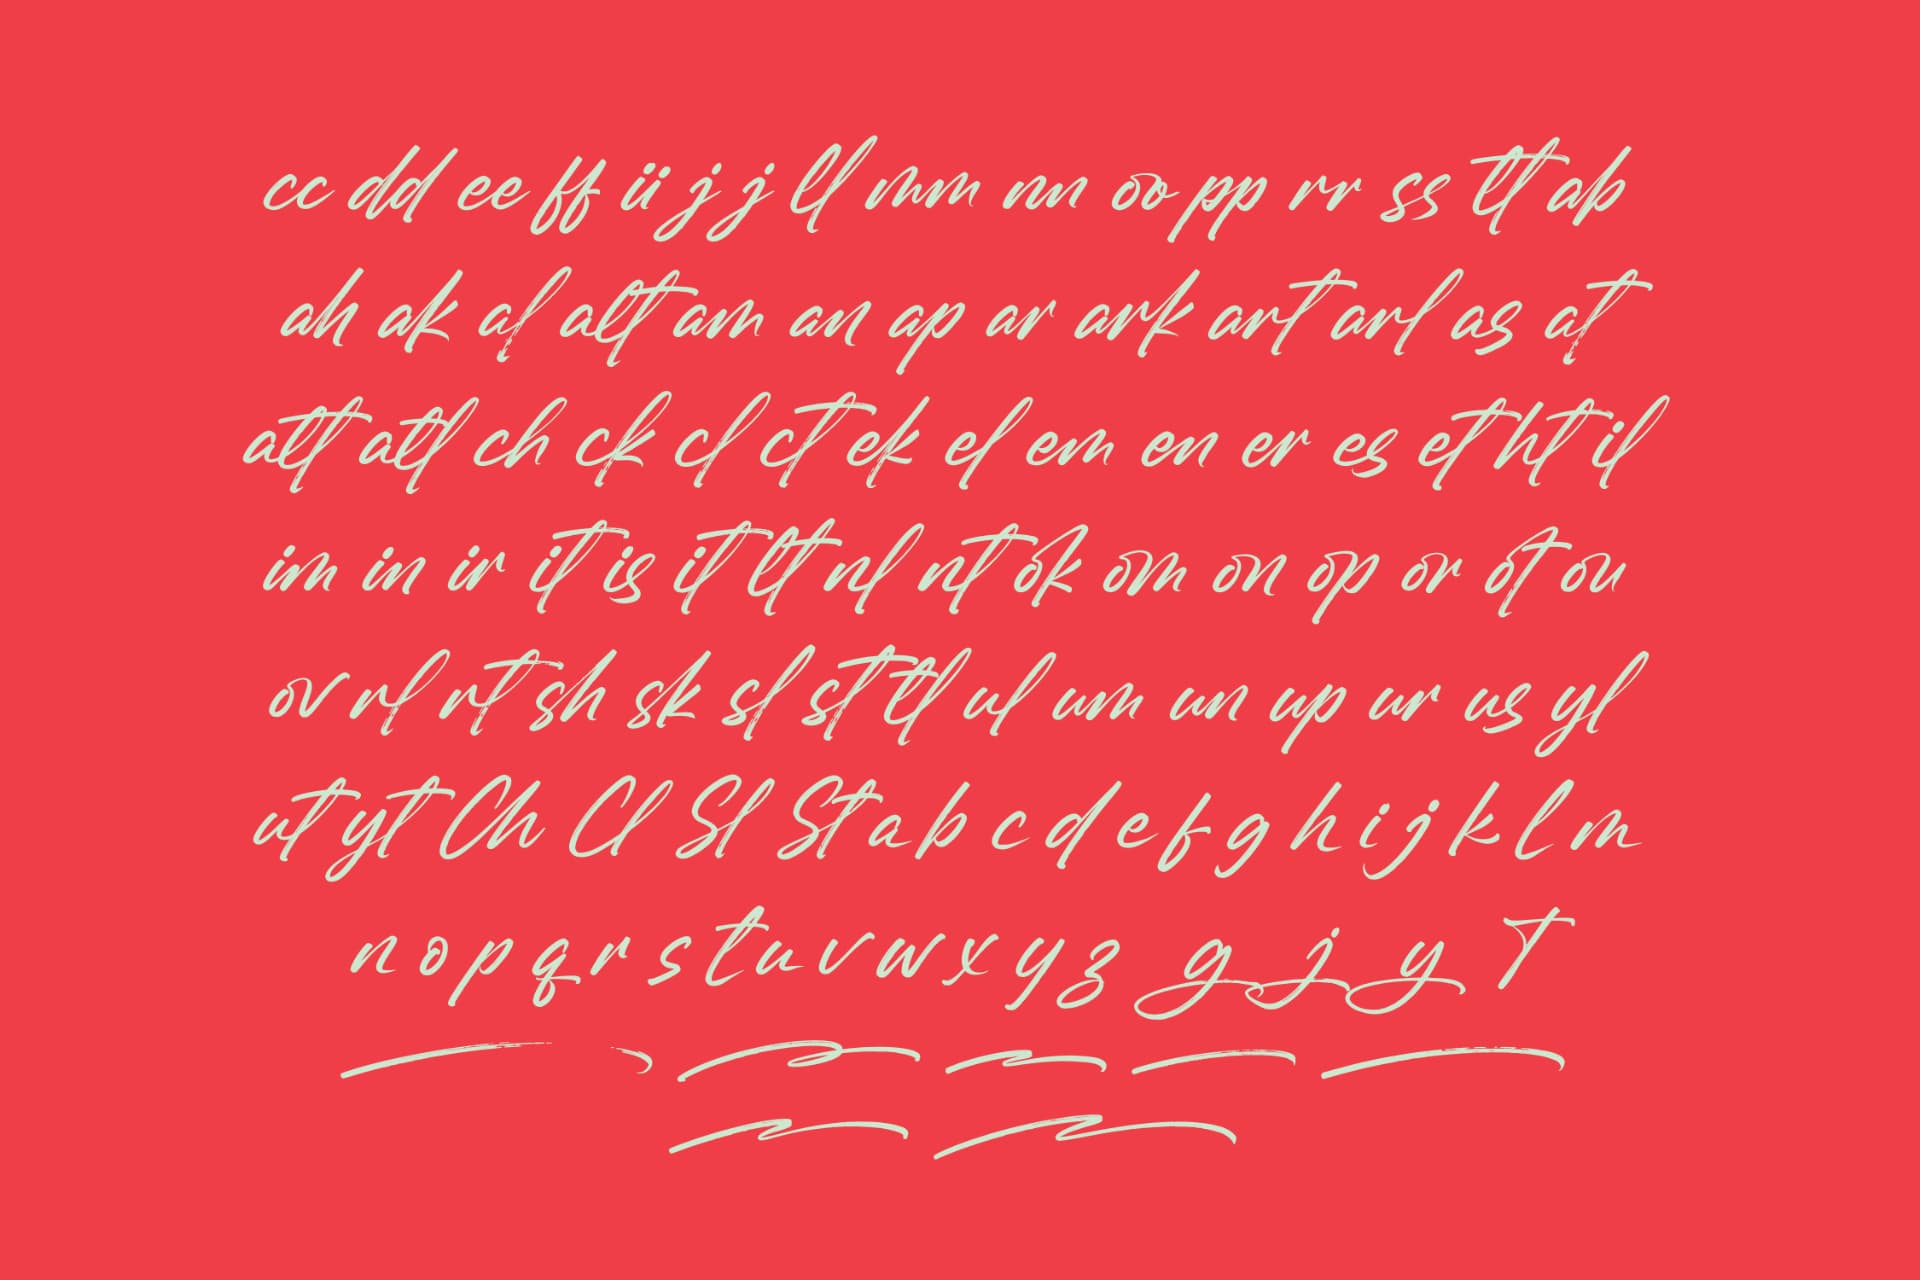 cc dd ee ff ii jj ll mm nn oo pp rr ss tt ab
ah ak al alt am an ap ar ark art arl as at
att atl ch ck cl ct ek el em en er es et ht il
im in ir it is it lt nl nt ok om on op or ot ou
ov rl rt sh sk sl st tl ul um un up ur us yl
ut yt Ch Cl Sl St a b c d e f g h i j k l m
n o p q r s t u v w x y z g j y T